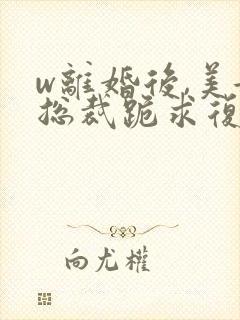 w離婚後,美
总裁跪求復
向尤權